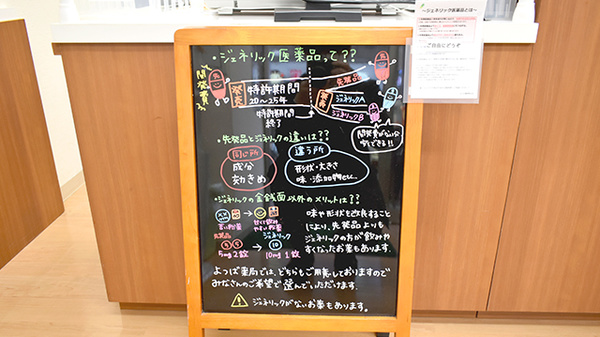 ・ジェネリック医薬品って??
開発費
発売
特許期間
20〜25年
特許期間
終了
先発品
発売
ジェネリックA
ジェネリックB
開発費がない分
安くできる!!
・先発品とジェネリックの違いは??
同じ所
成分
効きめ
違う所
形状・大きさ
味・添加物etc…
・ジェネリックの金銭面以外のメリットは??
苦い粉薬
甘くて飲み
やすい粉薬
先発品
ジェネリック
5 5
10
5mg 2錠
10mg 1錠
味や形状を改良すること
により、先発品よりも
ジェネリックの方が飲みや
すくなったお薬もあります。
よつば薬局では、どちらもご用意しておりますので
みなさんのご希望で選んでいただけます。
ジェネリックがないお薬もあります。
〜ジェネリック医薬品とは〜
ご自由にどうぞ